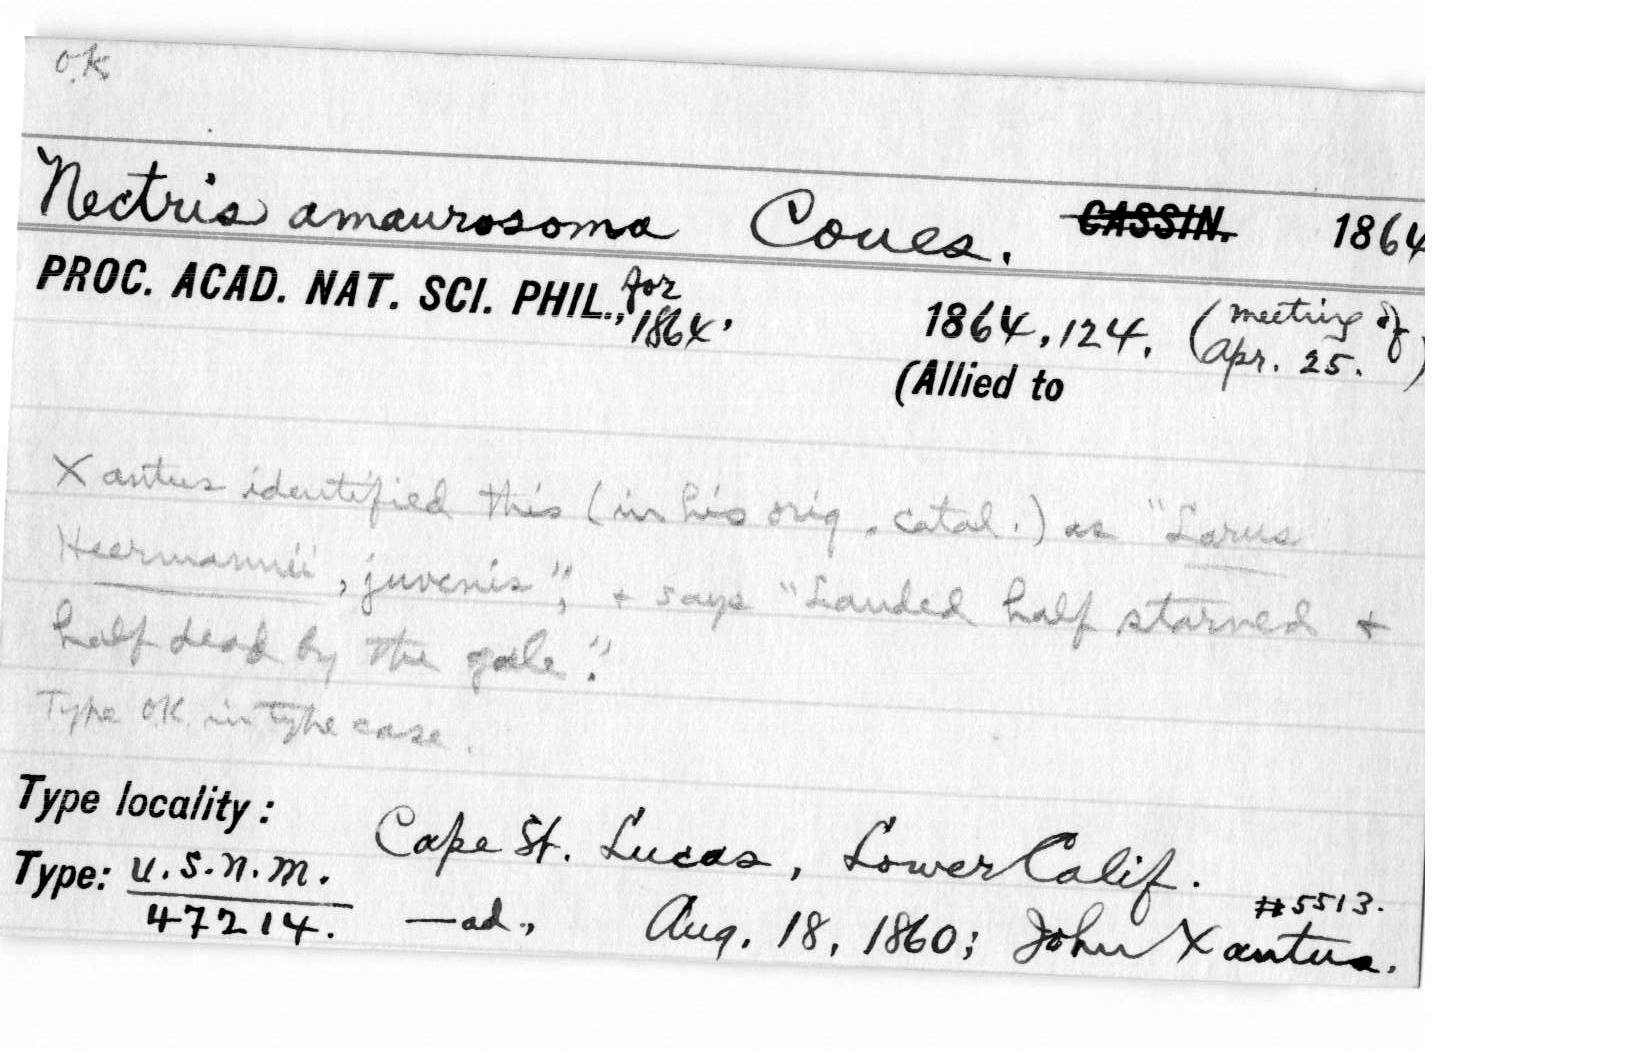 O.K.
Nectris amaurosoma Coues. CASSIN. 1864
PROC. ACAD. NAT. SCI. PHIL., for 1864, 1864, 124. (meeting of Apr. 25.)
(Allied to
Xantus identified this (in his orig. catal.) as "Larus
Heermannii, juvenis"; + says "Landed half starved +
half dead by the gale".
Type O.K. in type case.
Type locality: Cape St. Lucas, Lower Calif.
Type: U.S.N.M. #5513.
47214. —ad., Aug. 18, 1860; John Xantus.